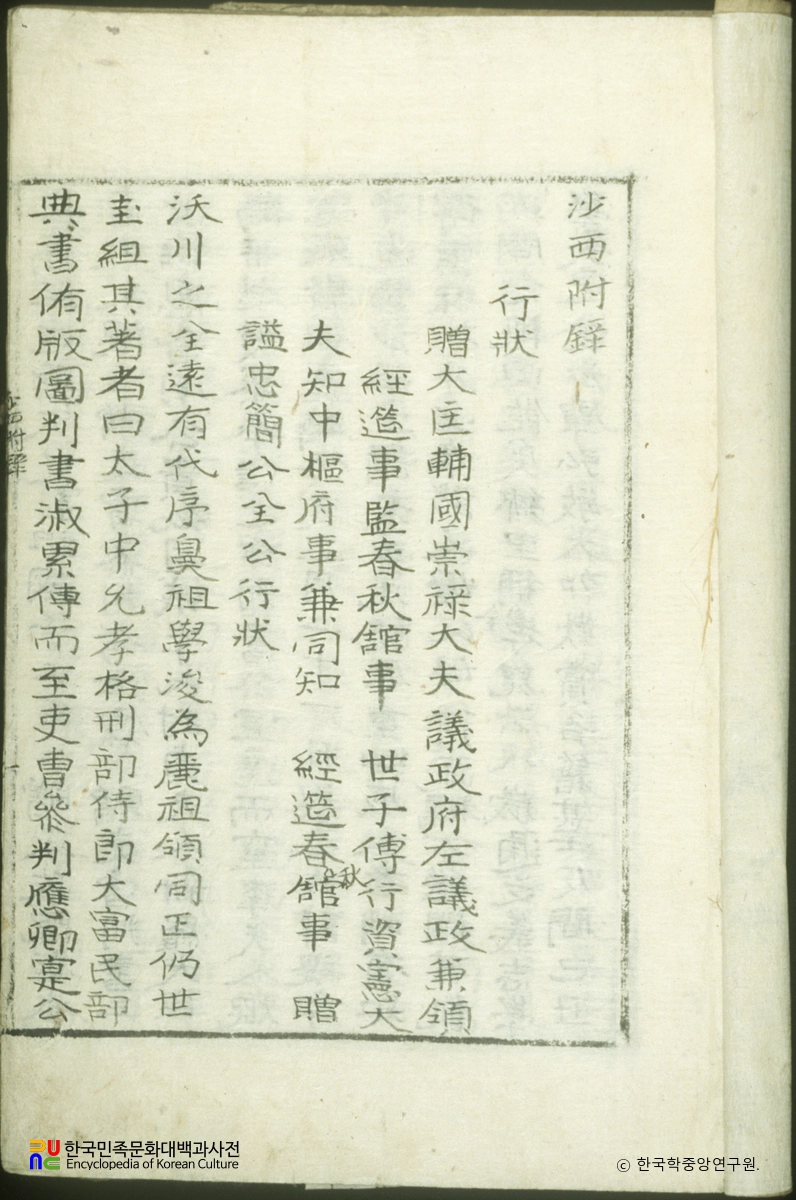 沙西附錄
行狀
贈大匡輔國崇祿大夫議政府左議政兼領
經筵事監春秋舘事 世子傅行資憲大
夫知中樞府事兼同知 經筵春秋舘事 贈
謚忠簡公全公行狀
沃川之全遠有代序鼻祖學浚為麗祖領同正仍世
圭組其著者曰太子中允孝格刑部侍郎大富民部
典書侑版圖判書淑累傳而至吏曹參判應卿寔公
沙西附錄
一
한국민족문화대백과사전
Encyclopedia of Korean Culture
© 한국학중앙연구원.